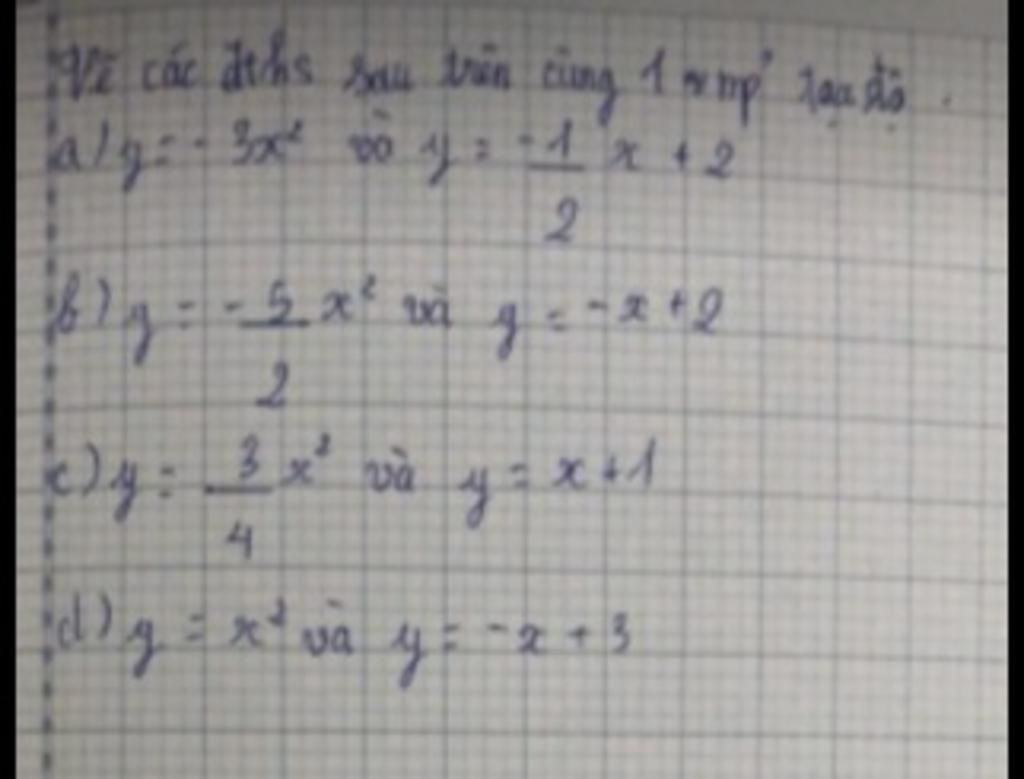 Vẽ các đths sau trên cùng 1 mp tọa độ.
a) y = - 3x² và y = -1/2 x + 2
b) y = -5/2 x² và y = -x + 2
c) y = 3/4 x² và y = x + 1
d) y = x² và y = -x + 3